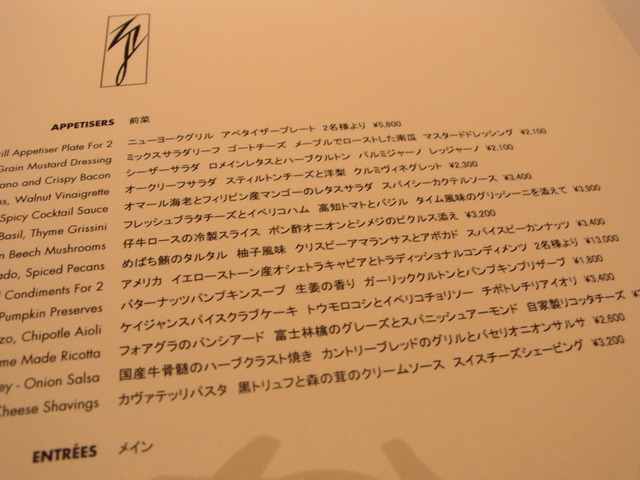 APPETISERS 前菜
ill Appetiser Plate For 2 ニューヨークグリル アペタイザープレート 2名様より ¥5,800
Grain Mustard Dressing ミックスサラダリーフ ゴートチーズ メープルでローストした南瓜 マスタードドレッシング ¥2,100
ano and Crispy Bacon シーザーサラダ ロメインレタスとハーブクルトン パルミジャーノ レッジャーノ ¥2,100
s, Walnut Vinaigrette オークリーフサラダ スティルトンチーズと洋梨 クルミヴィネグレット ¥2,300
Spicy Cocktail Sauce オマール海老とフィリピン産マンゴーのレタスサラダ スパイシーカクテルソース ¥3,400
Basil, Thyme Grissini フレッシュブラタチーズとイベリコハム 高知トマトとバジル タイム風味のグリッシーニを添えて ¥3,900
n Beech Mushrooms 仔牛ロースの冷製スライス ポン酢オニオンとシメジのピクルス添え ¥3,200
ado, Spiced Pecans めばち鮪のタルタル 柚子風味 クリスピーアマランサスとアボカド スパイスピーカンナッツ ¥3,400
l Condiments For 2 アメリカ イエローストーン産オシェトラキャビアとトラディッショナルコンディメンツ 2名様より ¥13,000
Pumpkin Preserves バターナッツパンプキンスープ 生姜の香り ガーリッククルトンとパンプキンプリザーブ ¥1,800
zo, Chipotle Aioli ケイジャンスパイスクラブケーキ トウモロコシとイベリコチョリソー チポトレチリアイオリ ¥3,400
me Made Ricotta フォアグラのパンシアード 富士林檎のグレーズとスパニッシュアーモンド 自家製リコッタチーズ
ey - Onion Salsa 国産牛骨髄のハーブクラスト焼き カントリーブレッドのグリルとパセリオニオンサルサ ¥2,600
Cheese Shavings カヴァテッリパスタ 黒トリュフと森の茸のクリームソース スイスチーズシェービング ¥3,200
ENTRÉES メイン